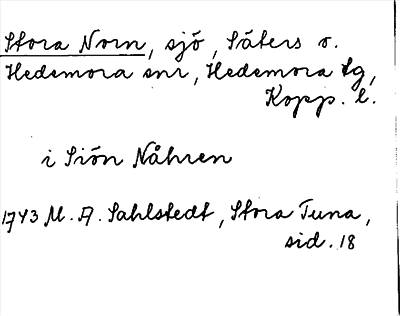 Stora Norn, sjö, Säters o.
Hedemora snr, Hedemora tg,
Kopp. l.
i Siön Nåhren
1743 M. A. Sahlstedt, Stora Tuna,
sid. 18